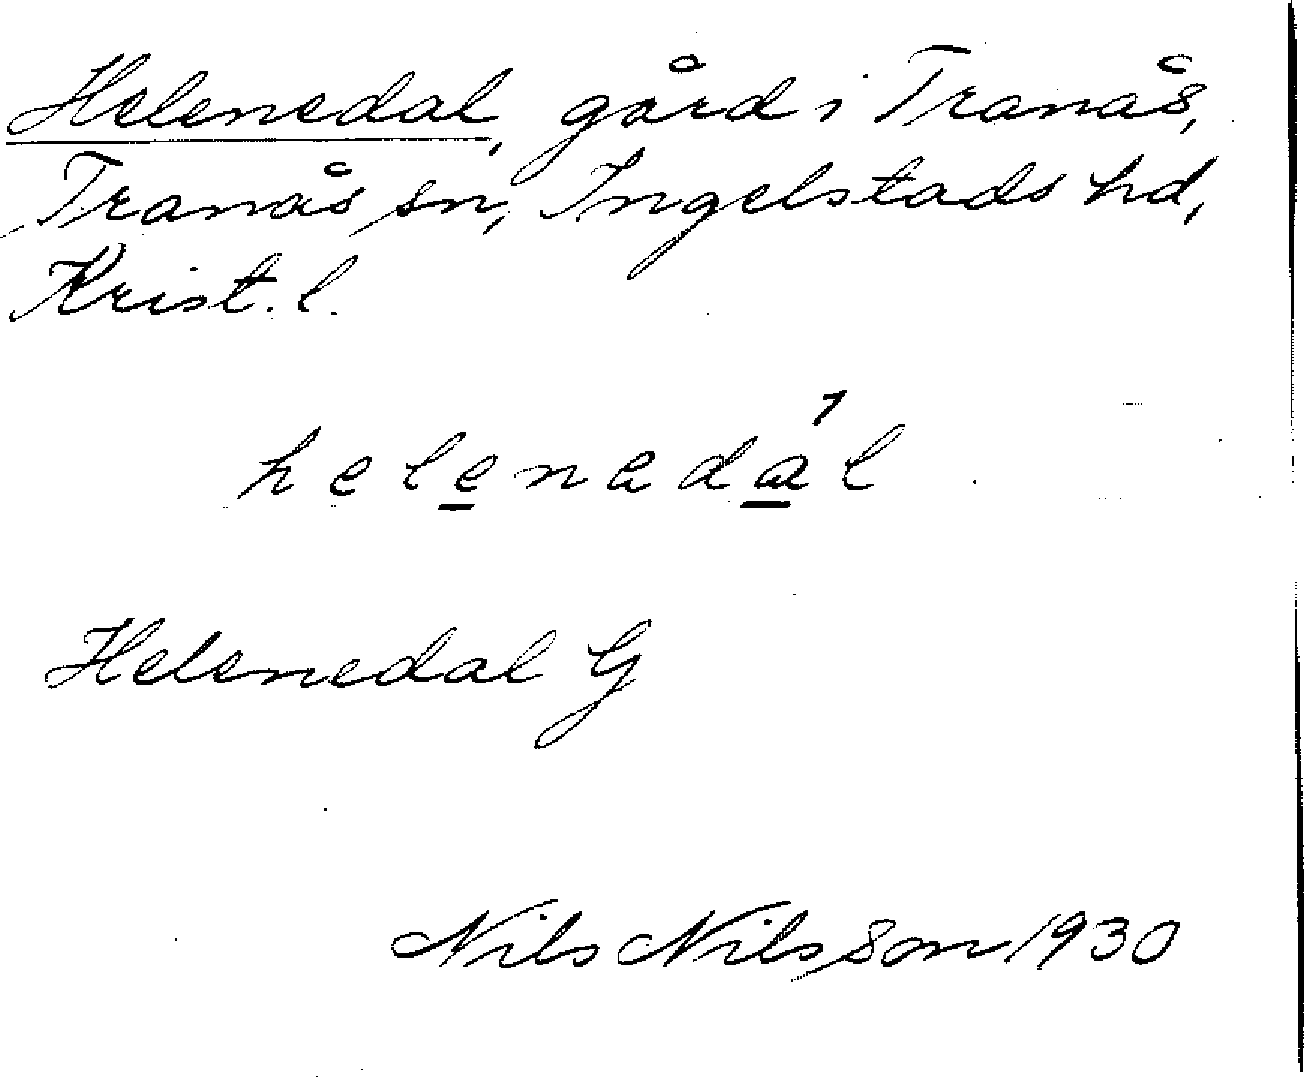 Helenedal, gård i Tranås,
Tranås sn, Ingelstads hd,
Krist. l.
helenadál
Helenedal G
Nils Nilsson 1930